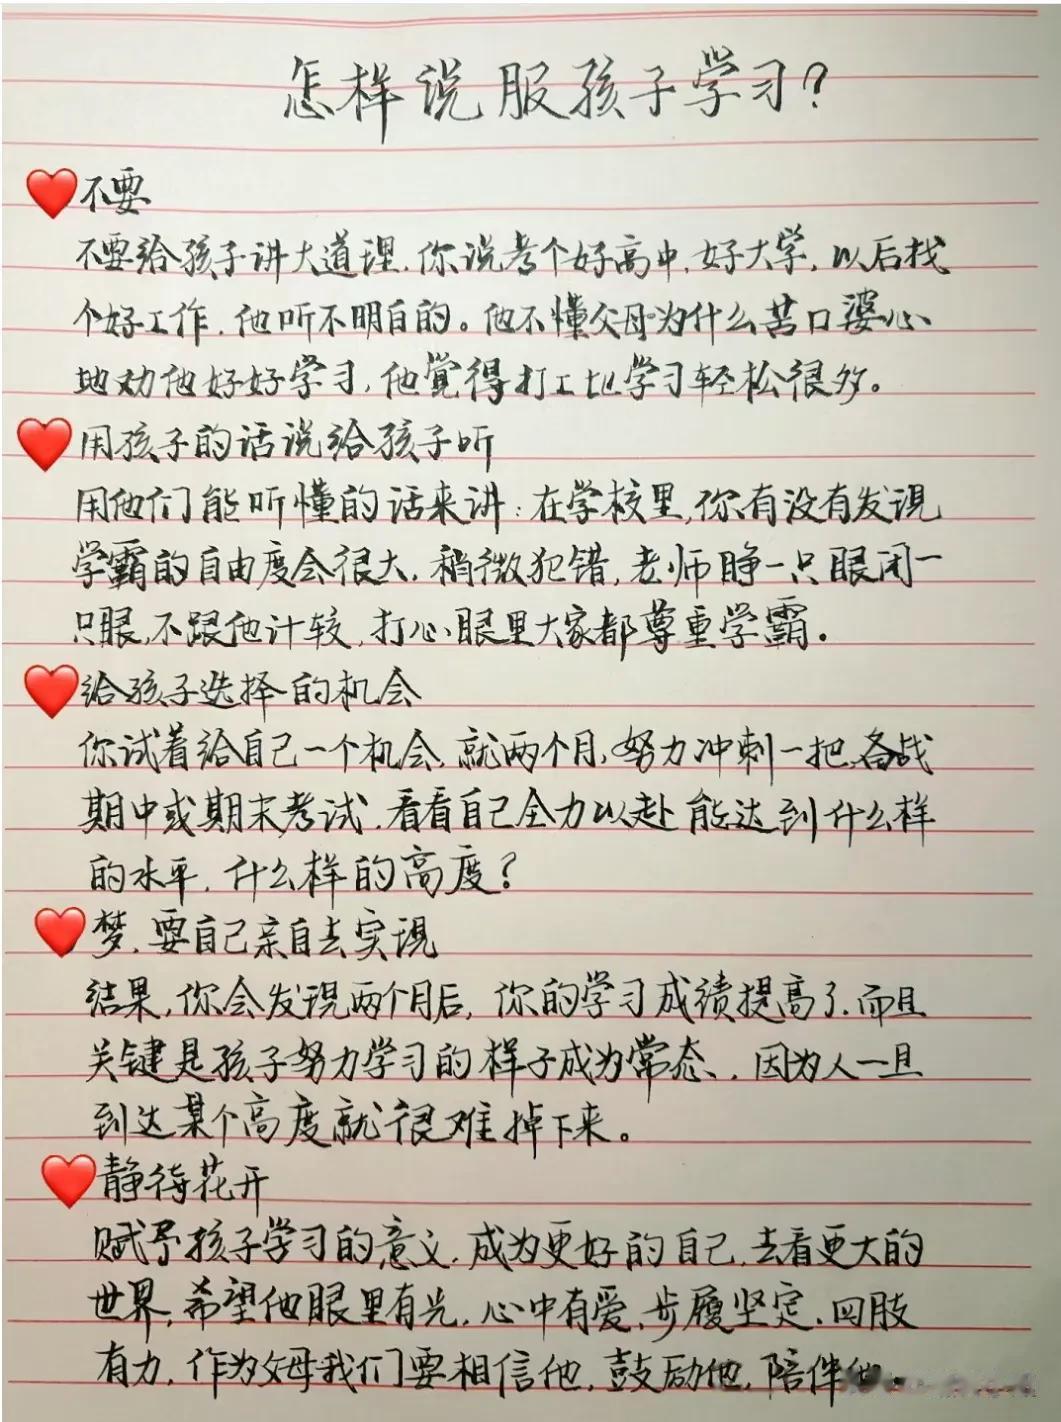 怎样说服孩子学习?
不要
不要给孩子讲大道理,你说考个好高中,好大学,以后找
个好工作,他听不明白的。他不懂父母为什么苦口婆心
地劝他好好学习,他觉得打工比学习轻松很多。
用孩子的话说给孩子听
用他们能听懂的话来讲:在学校里,你有没有发现
学霸的自由度会很大,稍微犯错,老师睁一只眼闭一
只眼,不跟他计较,打心眼里大家都尊重学霸.
给孩子选择的机会
你试着给自己一个机会,就两个月,努力冲刺一把,备战
期中或期末考试,看看自己全力以赴能达到什么样
的水平,什么样的高度?
梦,要自己亲自去实现
结果,你会发现两个月后,你的学习成绩提高了,而且
关键是孩子努力学习的样子成为常态,因为人一旦
到达某个高度就很难掉下来。
静待花开
赋予孩子学习的意义,成为更好的自己,去看更大的
世界,希望他眼里有光,心中有爱,步履坚定,四肢
有力,作为父母我们要相信他,鼓励他,陪伴他.